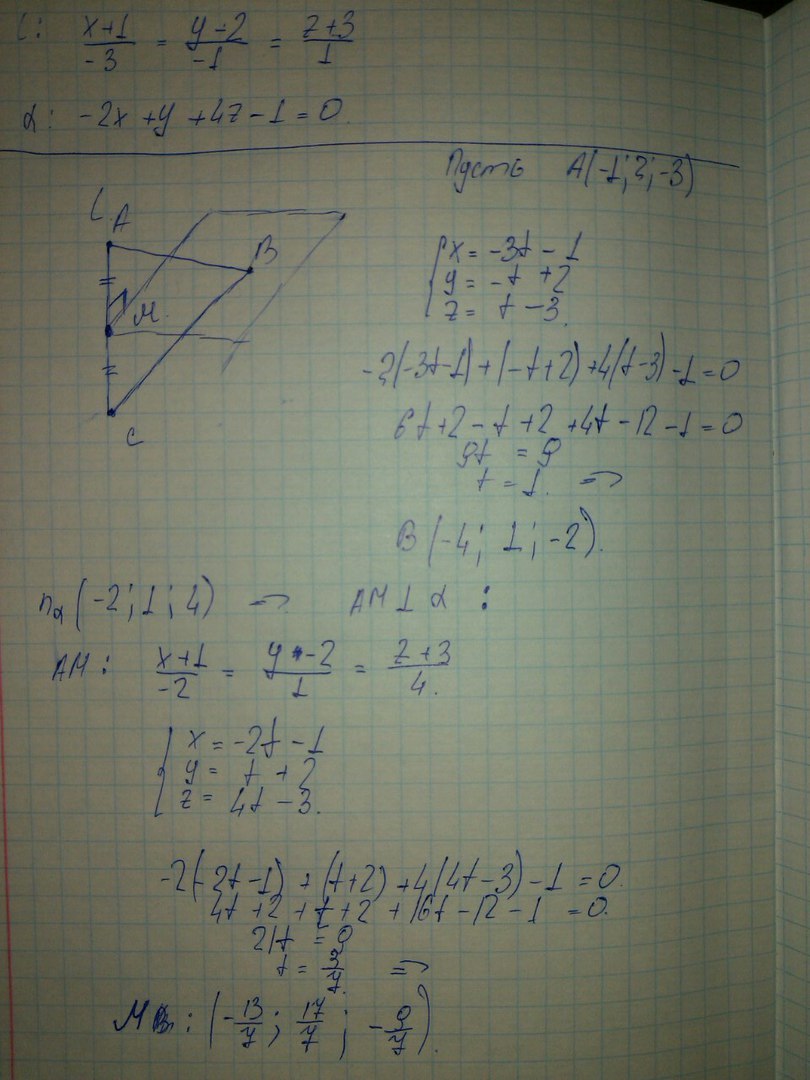 L: (x+1)/(-3) = (y-2)/(-1) = (z+3)/1
α: -2x + y + 4z - 1 = 0.
Пусть A(-1; 2; -3)
L A
B
M
C
{ x = -3t - 1
y = -t + 2
z = t - 3.
-2(-3t-1) + (-t+2) + 4(t-3) - 1 = 0
6t + 2 - t + 2 + 4t - 12 - 1 = 0
9t = 9
t = 1. =>
B (-4; 1; -2).
n_α (-2; 1; 4) => AM ⊥ α :
AM: (x+1)/(-2) = (y-2)/1 = (z+3)/4.
{ x = -2t - 1
y = t + 2
z = 4t - 3.
-2(-2t-1) + (t+2) + 4(4t-3) - 1 = 0.
4t + 2 + t + 2 + 16t - 12 - 1 = 0.
21t = 9
t = 3/7. =>
M : (-13/7; 17/7; -9/7).